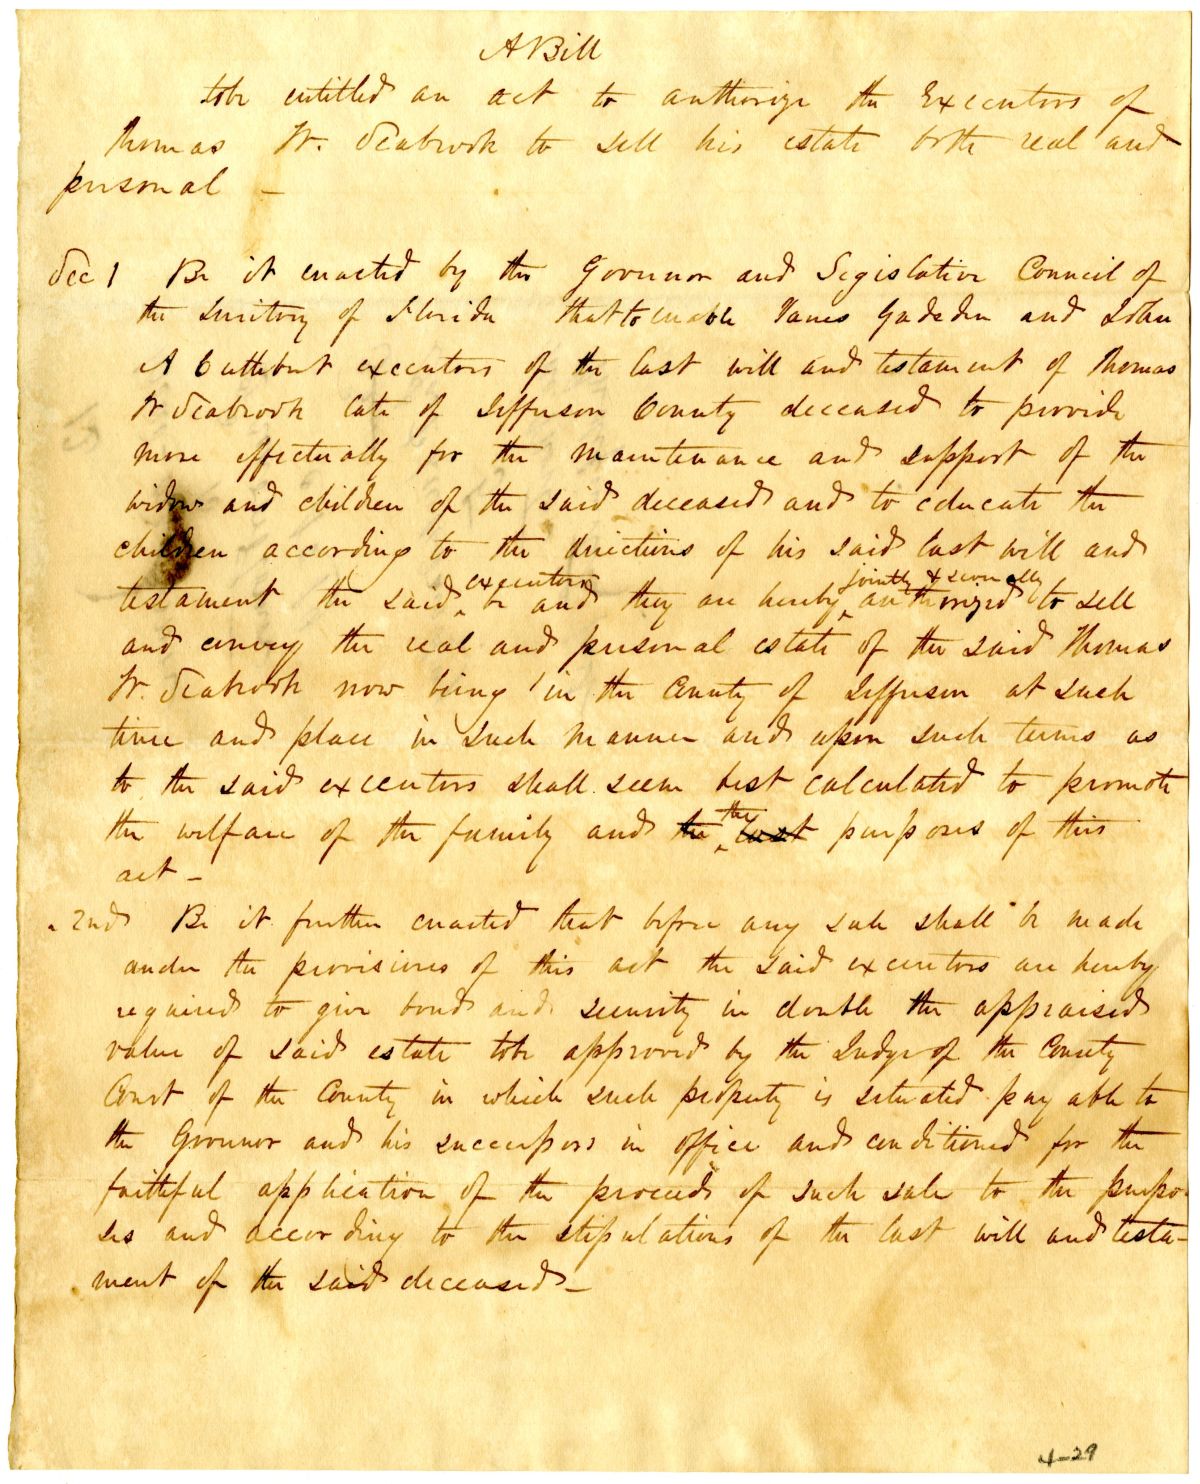 A Bill
to be entitled an act to authorize the Executors of
Thomas W. Seabrook to sell his estate both real and
personal –
Sec 1 Be it enacted by the Governor and Legislative Council of
the Territory of Florida that to enable James Gadsden and John
A Cuthbert executors of the last will and testament of Thomas
W Seabrook late of Jefferson County deceased to provide
more effectually for the maintenance and support of the
widow and children of the said deceased and to educate the
children according to the directions of his said last will and
executors jointly & severally
testament the said ‸ be and they are hereby ‸ authorized to sell
and convey the real and personal estate of the said Thomas
W. Seabrook now being in the County of Jefferson at such
time and place in such manner and upon such terms as
to the said executors shall seem best calculated to promote
the
the welfare of the family and the ‸ last purposes of this
act –
" 2nd Be it further enacted that before any sale shall be made
under the provisions of this act the said executors are hereby
required to give bond and security in double the appraised
value of said estate to be approved by the Judge of the County
Court of the County in which such property is situated payable to
the Governor and his successors in office and conditioned for the
faithful application of the proceeds of such sale to the purpo
ses and according to the stipulations of the last will and testa–
ment of the said deceased –
4–29